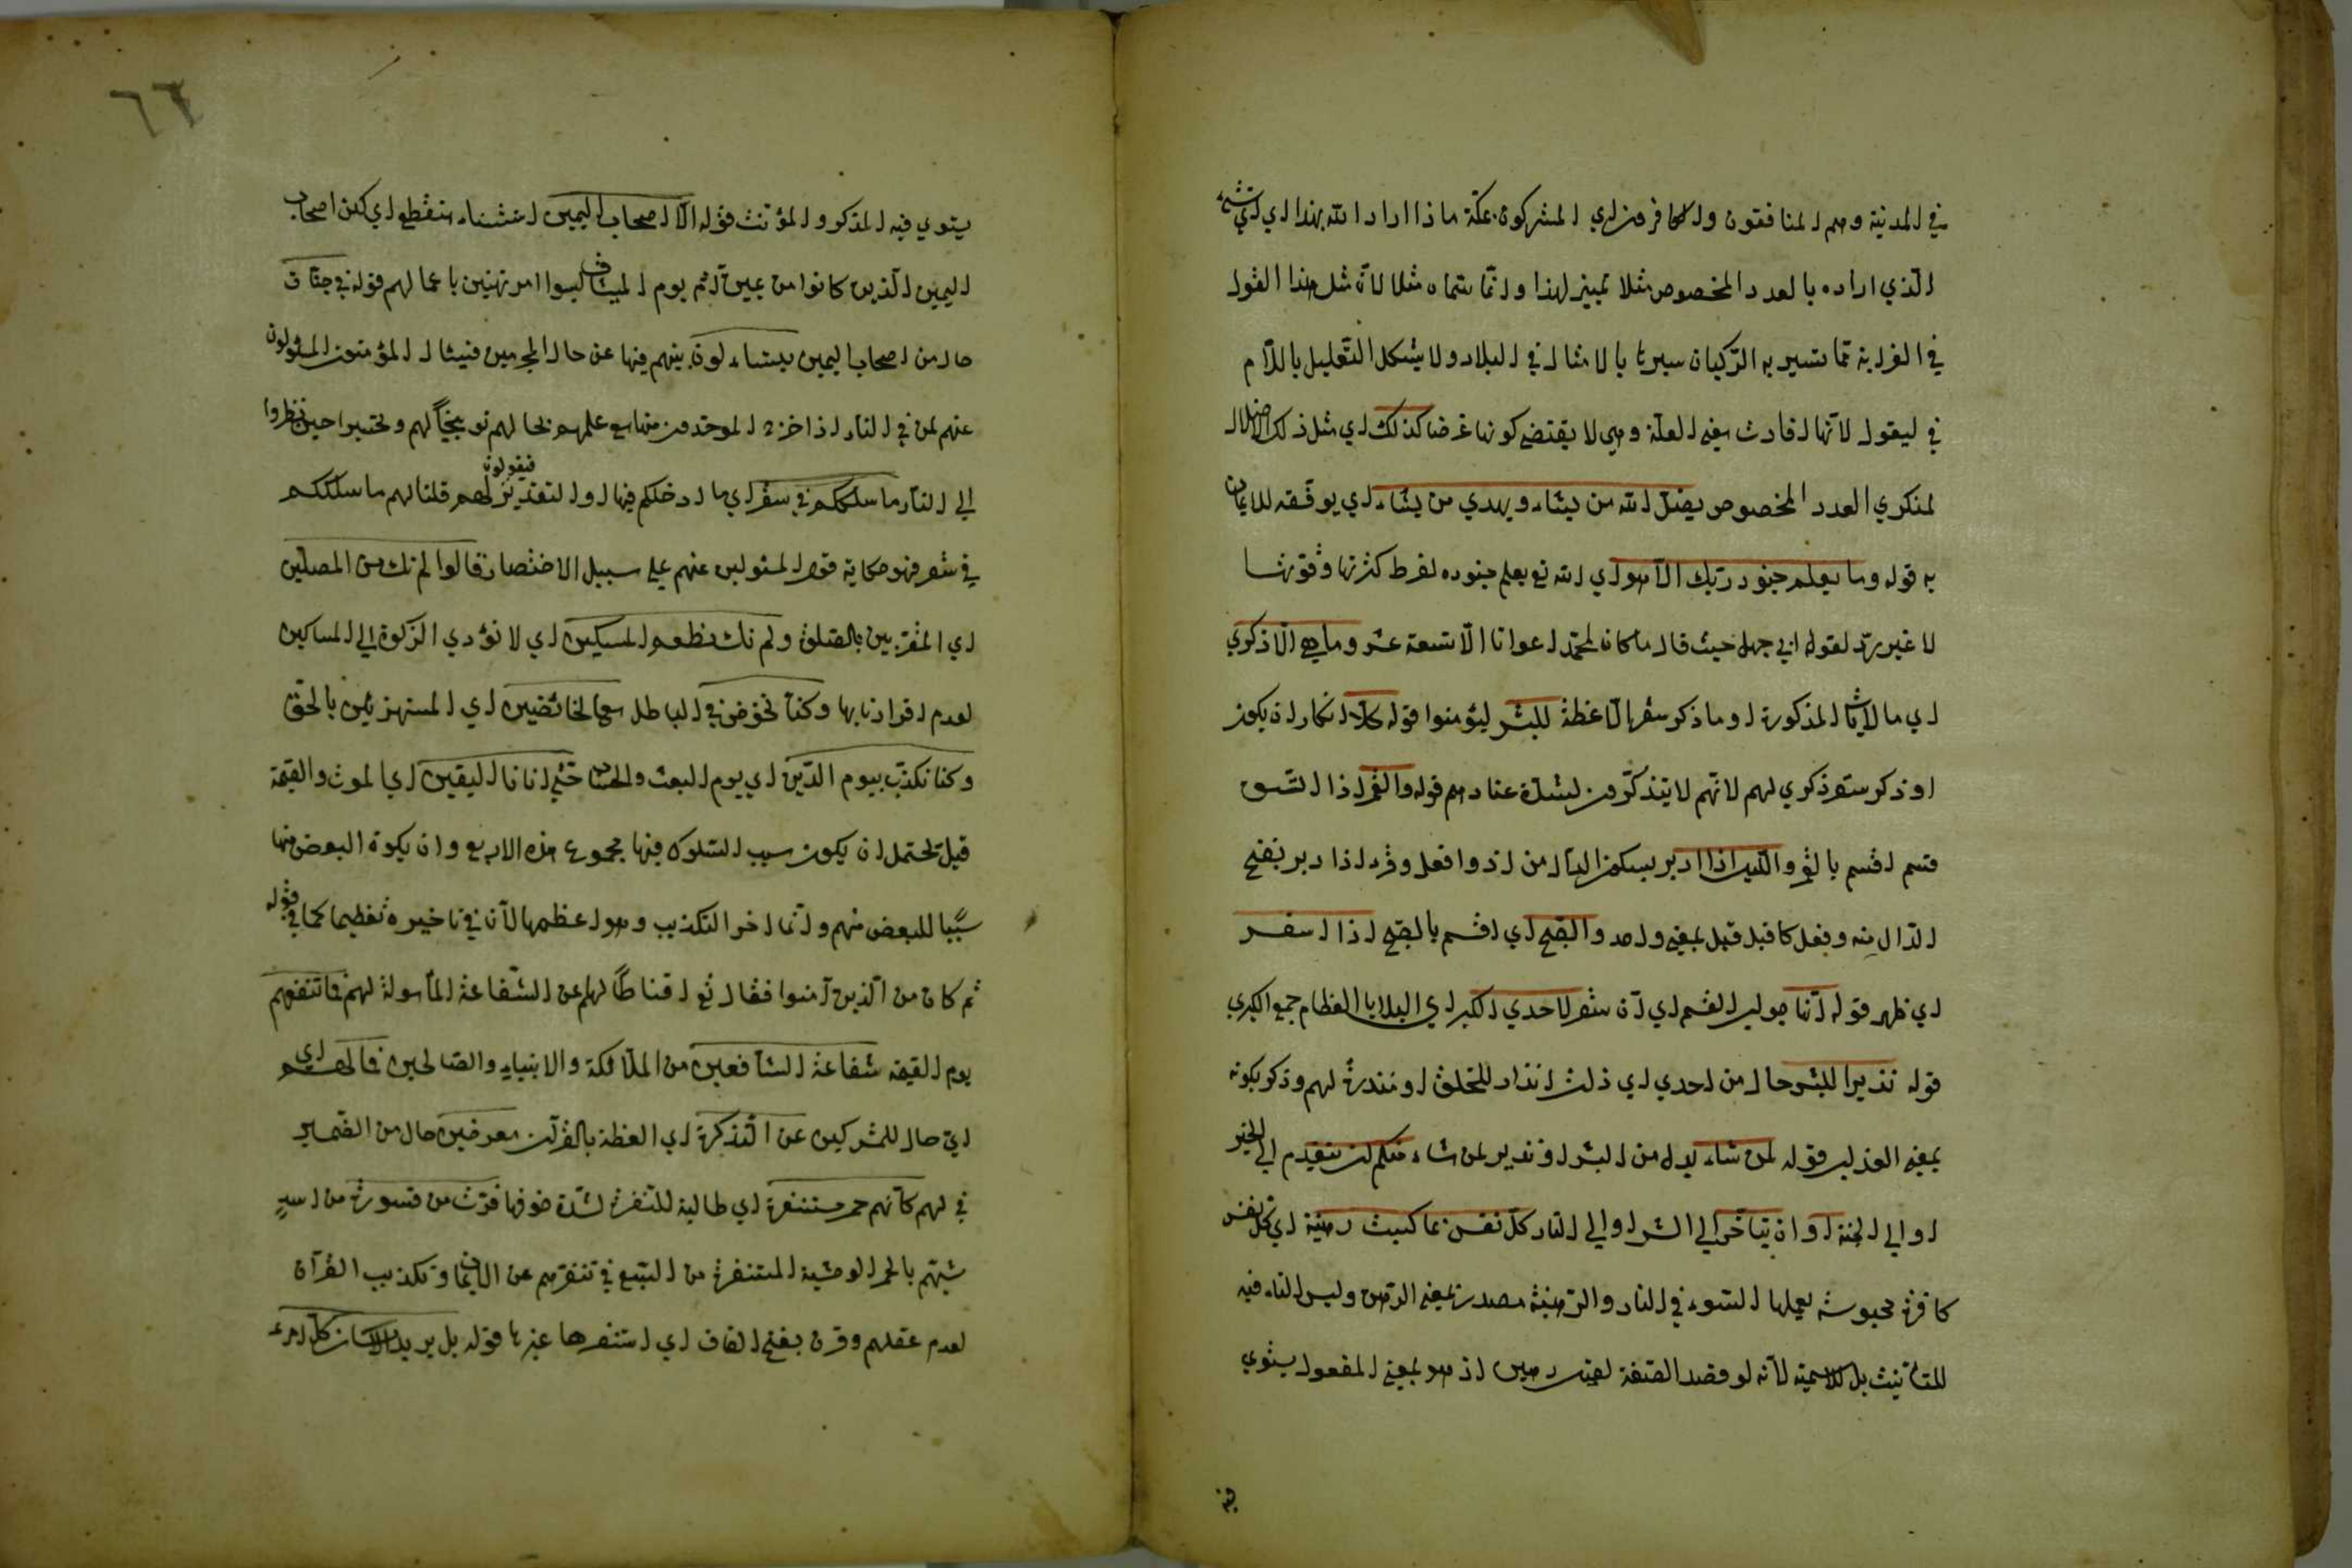 في المدينة وهم المنافقون والكافرون اي المشركون بمكة ماذا اراد الله بهذا اي اي شيء
الذي اراده بالعدد المخصوص مثلا تمييز لهذا وانما سماه مثلا لان مثل هذا القول
في الغرابة مما تسير به الركبان سيرها بالامثال في البلاد ولا يشكل التعليل باللام
في ليقول لانها افادت معنى العلة وهي لا يقتضي كونها غرضا كذلك اي مثل ذلك الضلال
لمنكري العدد المخصوص يضل الله من يشاء ويهدي من يشاء اي يوفقه للايمان
به قوله وما يعلم جنود ربك الا هو اي الله تع يعلم جنوده لفرط كثرتها وقوتها
لا غير رد لقول ابي جهل حيث قال ما كان لمحمد اعوانا الا تسعة عشر وما هي الا ذكرى
اي ما الايات المذكورة او ما ذكر سقر الا عظة للبشر ليؤمنوا قوله كلا انكار ان يكون
او ذكر سقر ذكرى لهم لانهم لا يتذكرون لشدة عنادهم قوله والقمر اذا اتسق
قسم اقسم بالقمر والليل اذا ادبر بسكون الدال من اذ وافعل وقرء اذا دبر بفتح
الدال منه وفعل كاقبل قبل بمعنى واحد والصبح اي اقسم بالصبح اذا اسفر
اي ظهر قوله انها جواب القسم اي ان سقر لاحدى الكبر اي البلايا العظام جمع الكبرى
قوله نذيرا للبشر حال من احدى اي ذلت انذار للخلق او منذرة لهم وذكر بكونه
بمعنى العذاب قوله لمن شاء بدل من البشر او نذير لمن شاء منكم ان يتقدم الى الخير
او الى الجنة او ان يتاخر الى الشر او الى النار كل نفس بما كسبت رهينة اي كل نفس
كافرة محبوسة بعملها السوء في النار والرهينة مصدر بمعنى الرهن وليس التاء فيه
للتانيث بل للاسمية لانه لو قصد الصفة لقيل رهين اذ هو بمعنى المفعول يستوي
يستوي فيه المذكر والمؤنث قوله الا اصحاب اليمين استثناء منقطع اي لكن اصحاب
اليمين الذين كانوا من يمين آدم يوم الميثاق ليسوا مرتهنين باعمالهم قوله في جنات
حال من اصحاب اليمين يتساءلون بينهم فيها عن حال المجرمين فيسال المؤمنون المسؤولون
عنهم لمن في النار اذا اخرج الموحدون منها مع علمهم بحالهم توبيخا لهم وتحسيرا حين نظروا
الى النار ما سلككم في سقر اي ما ادخلكم فيها او التقدير فيقولون لهم قلنا لهم ما سلككم
في سقر فهو حكاية قول المسئولين عنهم على سبيل الاختصار قالوا لم نك من المصلين
اي المقربين بالصلوة ولم نك نطعم المسكين اي لا نؤدي الزكوة الى المساكين
لعدم اقرارنا بها وكنا نخوض في الباطل مع الخائضين اي المستهزئين بالحق
وكنا نكذب بيوم الدين اي يوم البعث والحساب حتى اتانا اليقين اي الموت والقيمة
قيل يحتمل ان يكون سبب السلوك فيها مجموع هذه الاربع وان يكون البعض منها
سببا للبعض منهم وانما اخر التكذيب وهو اعظمها لان في تاخيره تعظيما كما في قوله
ثم كان من الذين آمنوا فقال تع اقناطا لهم عن الشفاعة المأمولة لهم فما تنفعهم
يوم القيمة شفاعة الشافعين من الملائكة والانبياء والصالحين فما لهم اي
اي حال للمشركين عن التذكرة اي العظة بالقرآن معرضين حال من الضمير
في لهم كانهم حمر مستنفرة اي طالبة للنفرة لشدة خوفها فرت من قسورة من اسد
شبههم بالحمر الوحشية المستنفرة من السبع في تنفرهم عن الايمان وتكذيب القرآن
لعدم عقلهم وقرئ بفتح الفاف اي استنفرها غيرها قوله بل يريد كل امرء